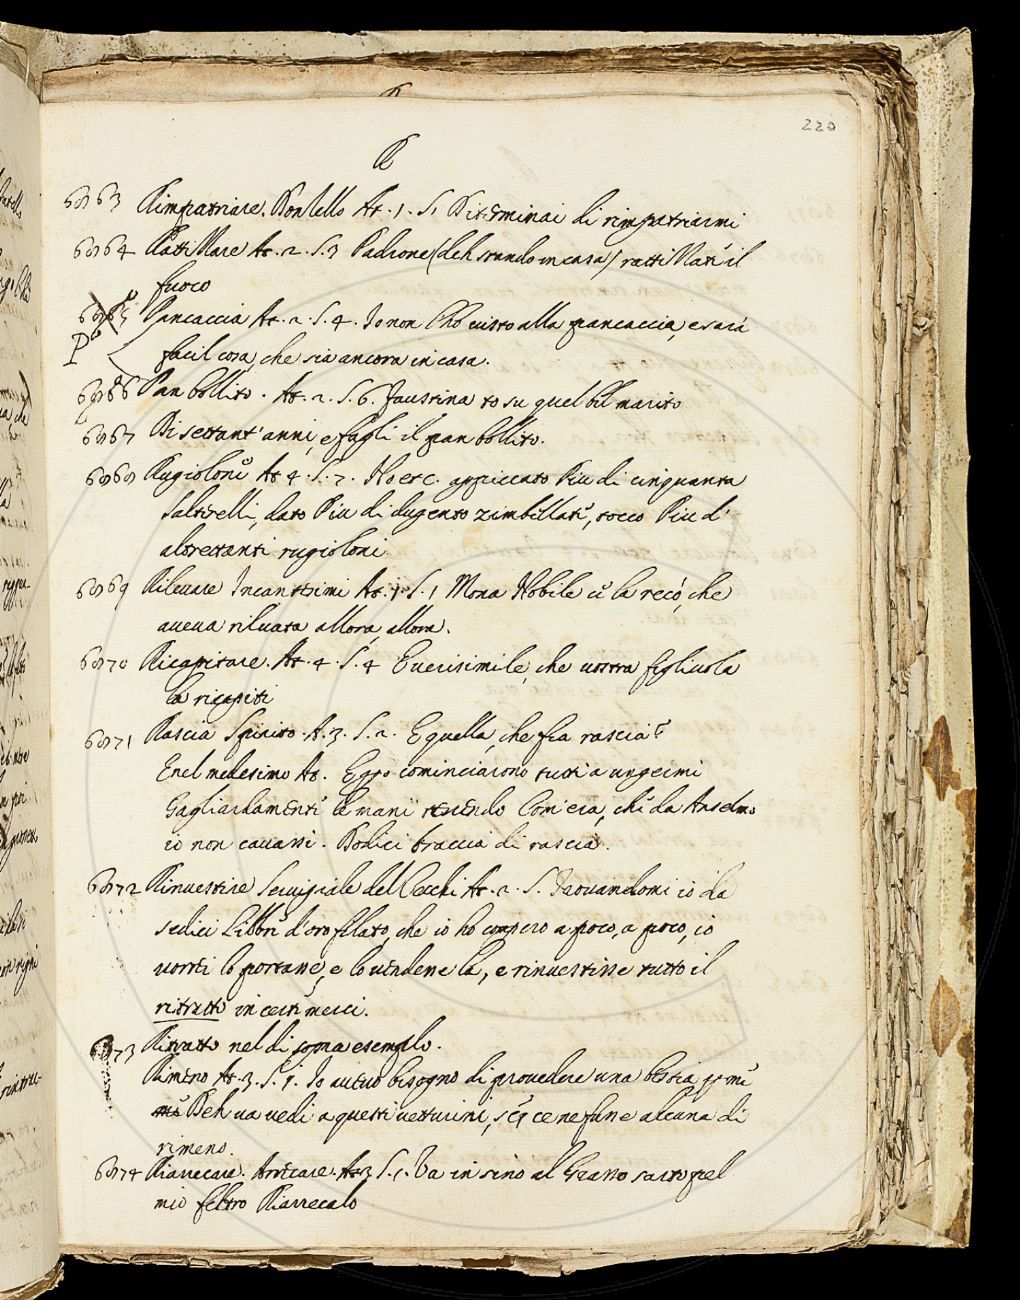 220
R
6963 Rimpatriare. Donzello At. 1. S. 1 Diterminai di rimpatriarmi
6964 Rattizzare At. 2. S. 3 Padrone (deh stando in casa) rattizzati il
fuoco
6965 Pancaccia At. 2. S. 4. Io non l'ho visto alla pancaccia, e sarà
P
facil cosa, che sia ancora in casa.
6966 Pan bollito. At. 2. S. 6. Faustina to su quel bel marito
6967 Di settant'anni, e fagli il pan bollito.
6968 Rugioloni At 4. S. 7. Ho etc. appiccato Piu di cinquanta
Saltirelli, dato Piu di dugento zimbellati, tocco Piu d'
altrettanti rugioloni
6969 Rilevare Incantesimi At. 1. S. 1 Mona Nobile ce la recò, che
aveva rilvata allora, allora.
6970 Ricapitare. At. 4. S. 4 E verisimile, che vostra figliuola
la ricapiti
6971 Rascia Spirito. A. 3. S. 2. E quella, che fia rascia?
E nel medesimo At. Eppo cominciarono tutti a ungermi
Gagliardamenti le mani tenendo Com'era, chi da Anselmo
io non cavassi. Dodici braccia di rascia.
6972 Rinvestire Servigiale del Cecchi At. 2. S. Trovandomi io da
sedici Libbri d'oro filato, che io ho compero a poco, a poco, io
vorrei lo portasse, e lo vendene là, e rinvestisse tutto il
ritratto in certi merci.
6973 Ritratto nel di sopra esemplo.
Rimeno At. 3. S. 1. Io avevo bisogno di provedere una bestia p mè
Deh va vedi a questi vetturini, se ce ne fusse alcuna di
rimeno.
6974 Riarrecare. Arrecare. At 3 S. 1. Va in sino al Grasso sarto pel
mio feltro Riarrecalo